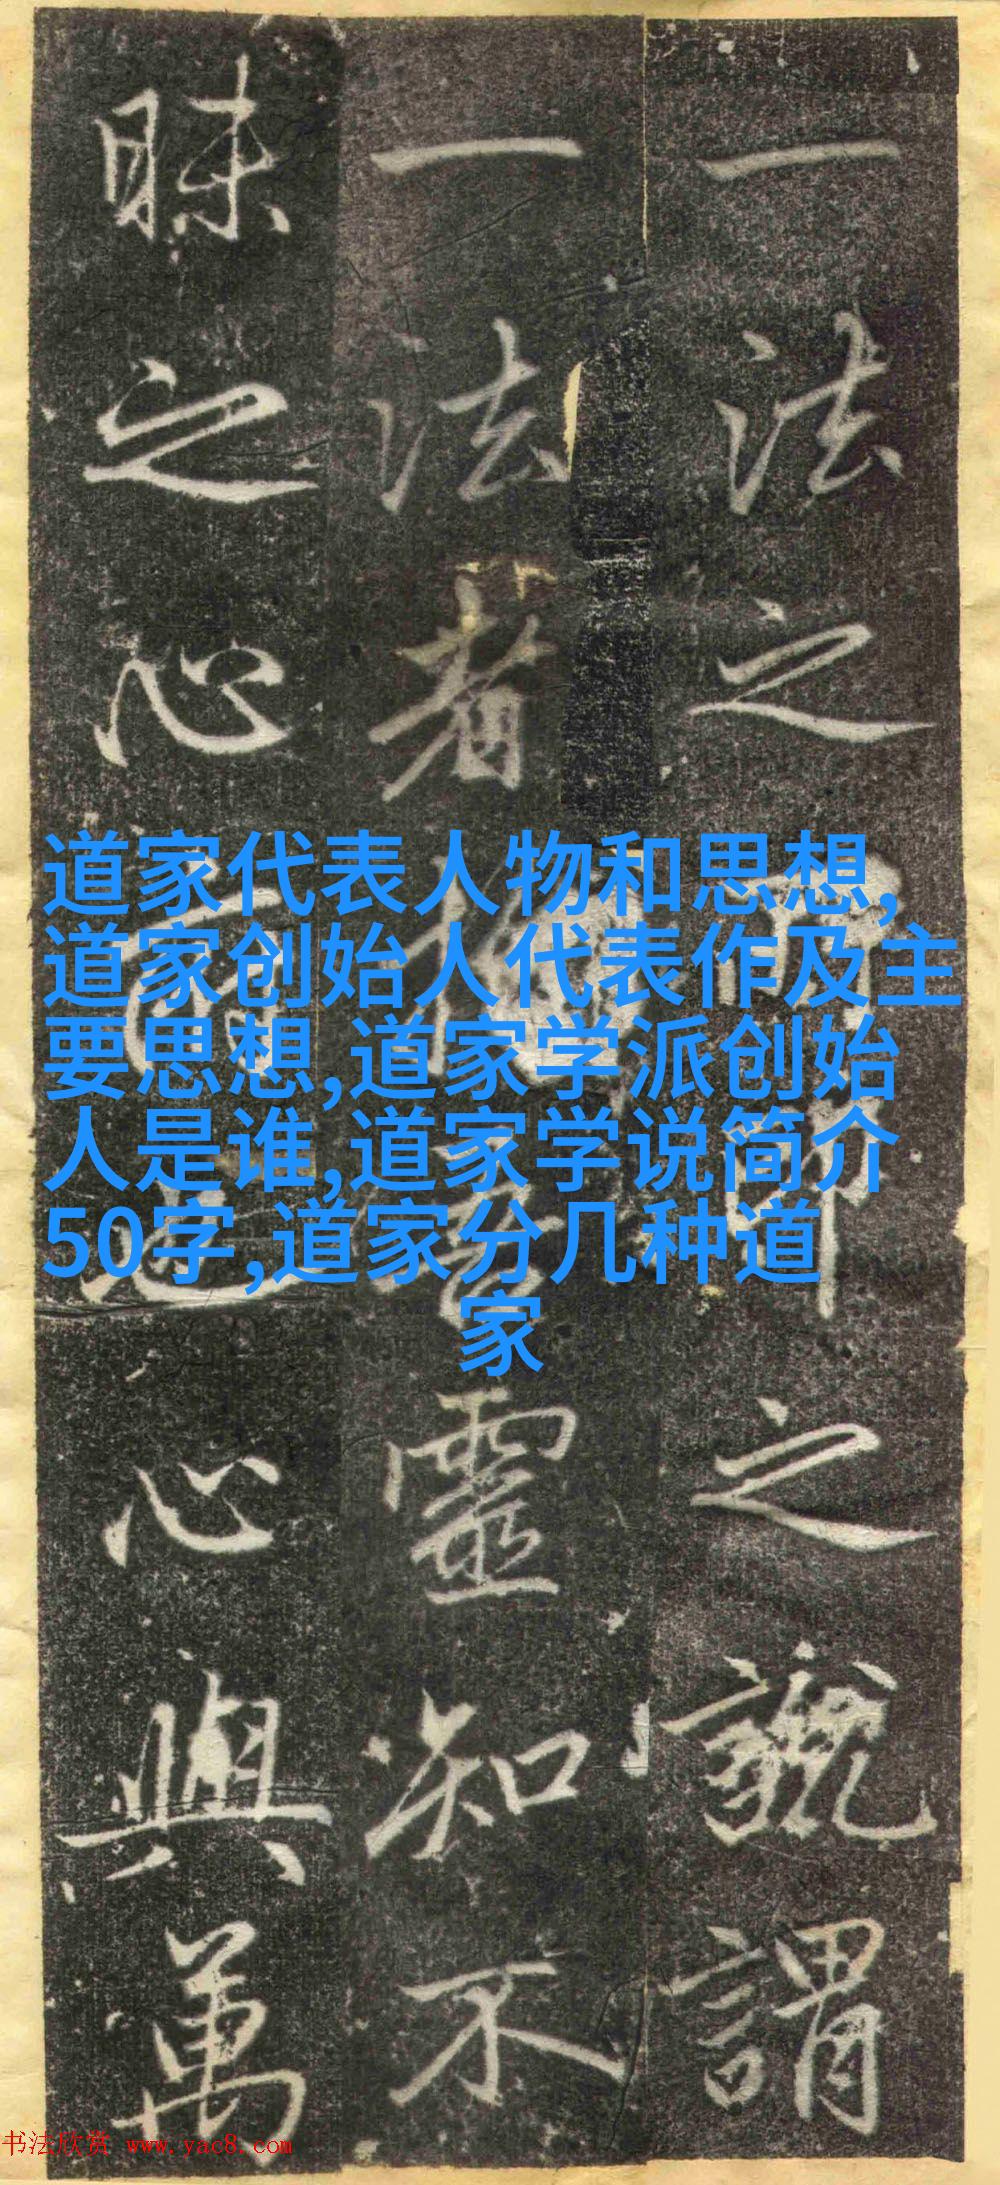 一法之印之號謂
一法者靈知不
昧之心心與萬
道家代表人物和思想,
道家创始人代表作及主
要思想,道家学派创始
人是谁,道家学说简介
50字,道家分几种道
家
书法欣赏 www.yac8.com